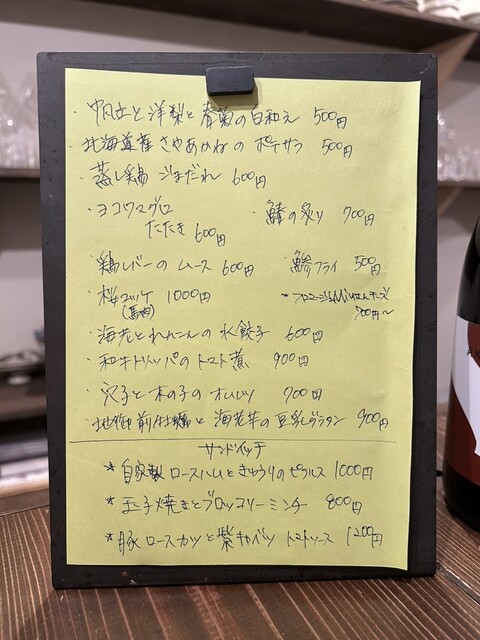 ・帆立と洋梨と春菊の白和え 500円
・北海道産さやあかねのポテサラ 500円
・蒸し鶏 ごまだれ 600円
・ヨコワマグロ たたき 600円
・鯖の炙り 700円
・鶏レバーのムース 600円
・鯵フライ 500円
・桜ユッケ 1000円
(馬肉)
・海老とれんこんの水餃子 600円
・和牛トリッパのトマト煮 900円
・穴子と木の子のオムレツ 700円
・地御前牡蠣と海老芋の豆乳グラタン 900円
サンドイッチ
*自家製ロースハムときゅうりのピクルス 1000円
*玉子焼きとブロッコリーミンチ 800円
*豚ロースカツと紫キャベツ トマトソース 1200円